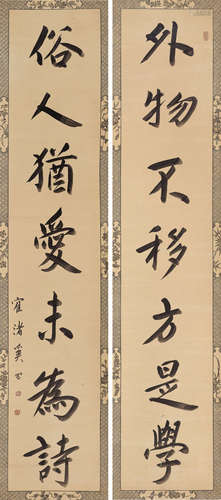 外物不移方是學
俗人猶愛未為詩